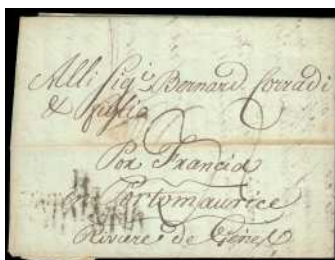 Alli Sig.i Bernard. Corradi
& figlio
Por Francia
en Portomaurice
Riviere de Gènes